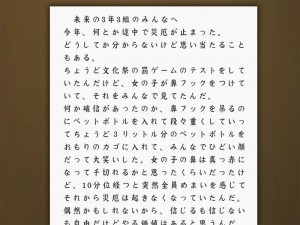 未来の3年3組のみんなへ
今年、何とか途中で災厄が止まった。
どうしてか分からないけど思い当たること
もある。
ちょうど文化祭の罰ゲームのテストをして
いたんだけど、女の子が鼻フックをつけて
いて、それをみんなで見てたんだ。
何か確信があったのか、鼻フックを吊るの
にペットボトルを入れて段々重くしていっ
てちょうど3リットル分のペットボトルを
おもりのカゴに入れて、みんなでひどい顔
だって大笑いした。女の子の鼻は真っ赤に
なって千切れるかと思ったくらいだったけ
ど、10分位経つと突然全員めまいを感じて
それから災厄は起きなくなっていたんだ。
偶然かもしれないから、信じるも信じない
も自由だけどやる価値はあると思うんだ。